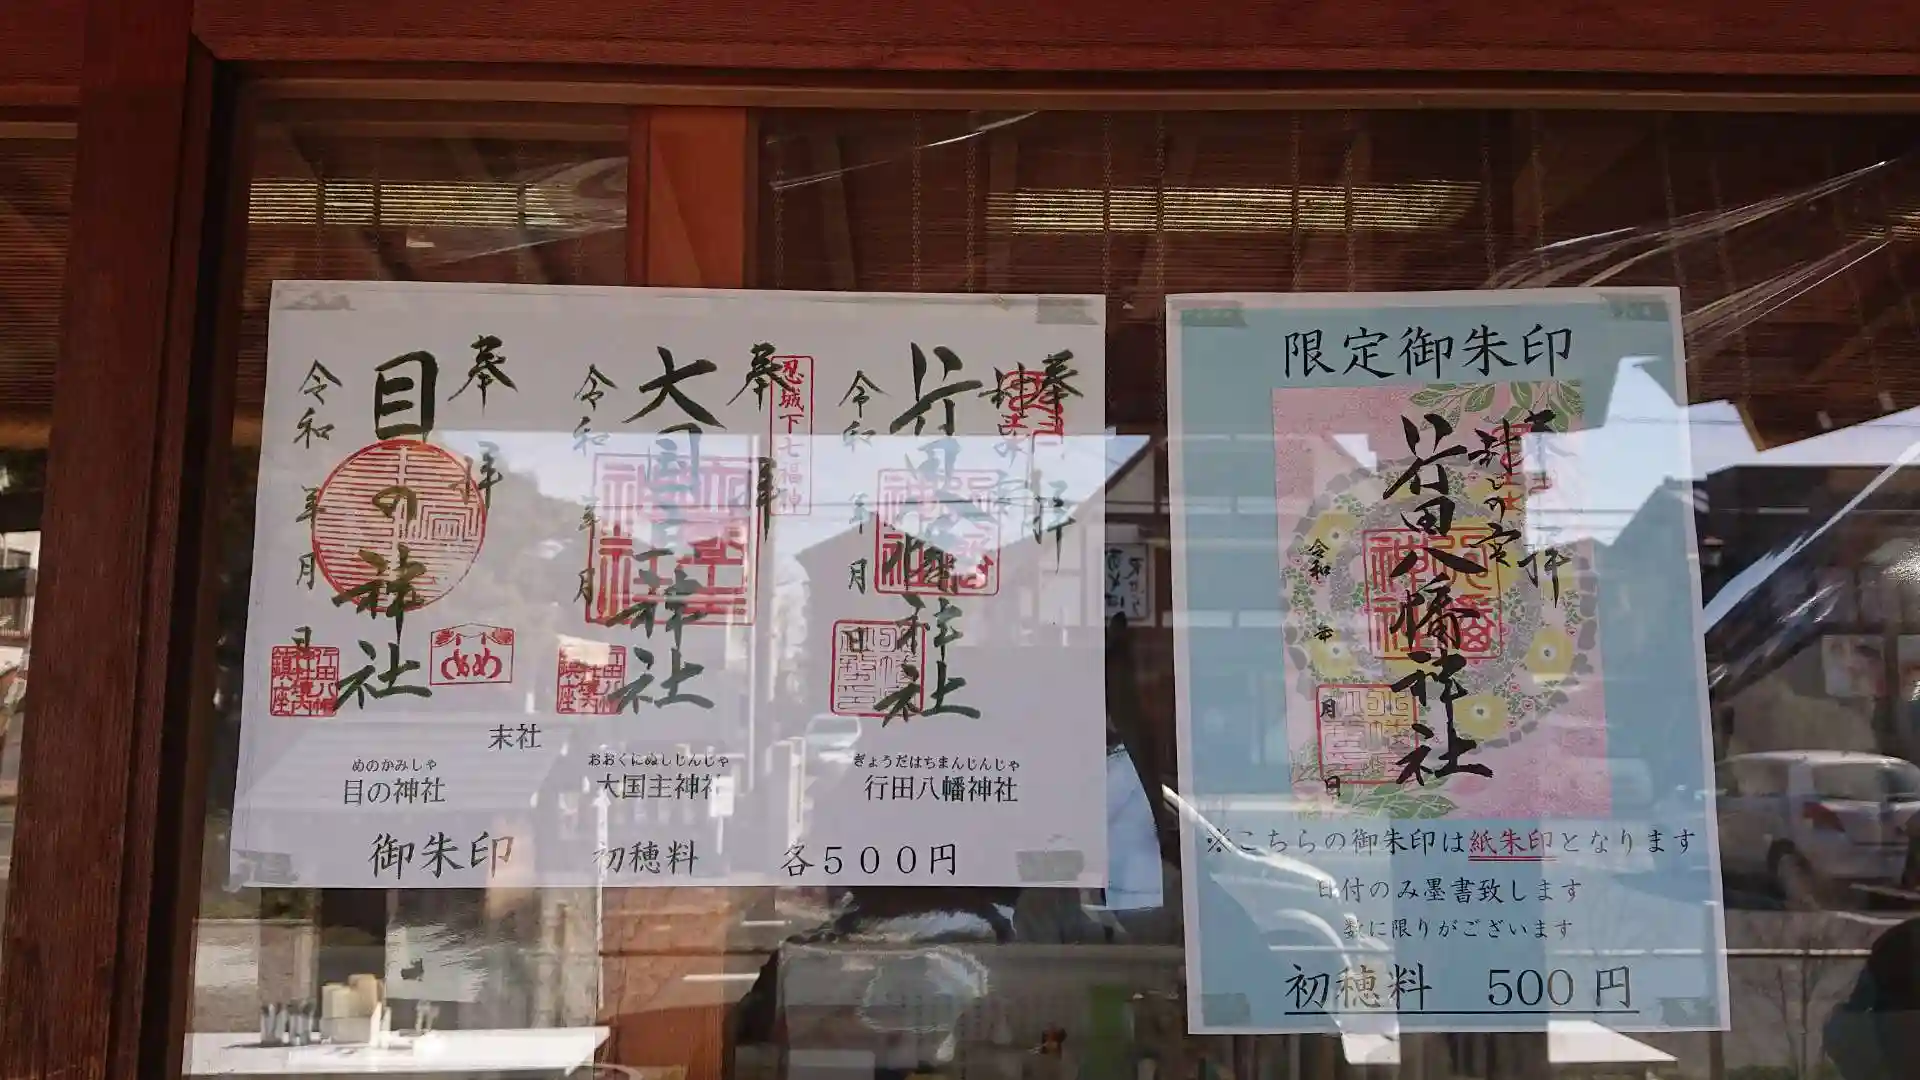 奉拝
行田八幡神社
令和 年 月 日
忍城下七福神
奉拝
大国主神社
令和 年 月
奉拝
目の神社
令和 年 月 日
めめ
行田八幡
末社
めのかみしゃ
目の神社
おおくにぬしじんじゃ
大国主神社
ぎょうだはちまんじんじゃ
行田八幡神社
御朱印 初穂料 各500円
限定御朱印
封じの宮
行田八幡神社
令和 年 月 日
※こちらの御朱印は紙朱印となります
日付のみ墨書致します
数に限りがございます
初穂料 500円